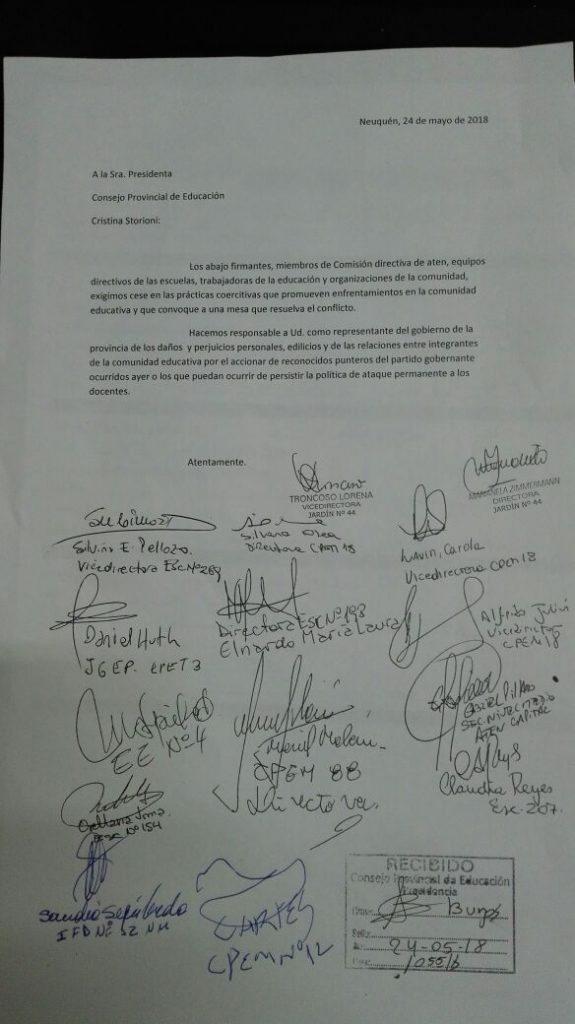 Neuquén, 24 de mayo de 2018
A la Sra. Presidenta
Consejo Provincial de Educación
Cristina Storioni:
Los abajo firmantes, miembros de Comisión directiva de aten, equipos
directivos de las escuelas, trabajadoras de la educación y organizaciones de la comunidad,
exigimos cese en las prácticas coercitivas que promueven enfrentamientos en la comunidad
educativa y que convoque a una mesa que resuelva el conflicto.
Hacemos responsable a Ud. como representante del gobierno de la
provincia de los daños y perjuicios personales, edilicios y de las relaciones entre integrantes
de la comunidad educativa por el accionar de reconocidos punteros del partido gobernante
ocurridos ayer o los que puedan ocurrir de persistir la política de ataque permanente a los
docentes.
Atentamente.
TRONCOSO LORENA
VICEDIRECTORA
JARDÍN Nº 44
MARIANELA ZIMMERMANN
DIRECTORA
JARDÍN Nº 44
Silvina E. Pellozo.
Vicedirectora Esc Nº 269
Silvana Olea
Directora CPEM 18
Lavin, Carola
Vicedirectora CPEM 18
Daniel Huth
JGEP. EPET 3
Directora ESC Nº 198
Elnardo María Laura
Vicedirector
CPEM 18
EE Nº 4
CPEM 88
Directora.
SEC. NIVEL MEDIO
ATEN CAPITAL
Claudia Reyes
Esc. 207.
Orellana Irma
ESC Nº 154
Sandra Sepúlveda
IFD Nº 12 NQN
CPEM Nº 12
RECIBIDO
Consejo Provincial de Educación
Presidencia
Burgos
24-05-18